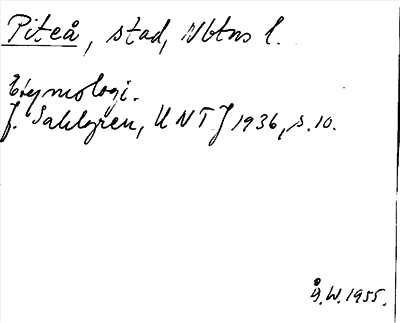 Piteå, stad, Nbtns l.
Etymologi.
J. Sahlgren, UNTJ 1936, s. 10.
Å.W. 1955.